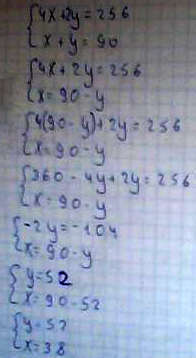 4x+2y=256
x+y=90
4x+2y=256
x=90-y
4(90-y)+2y=256
x=90-y
360-4y+2y=256
x=90-y
-2y=-104
x=90-y
y=52
x=90-52
y=52
x=38